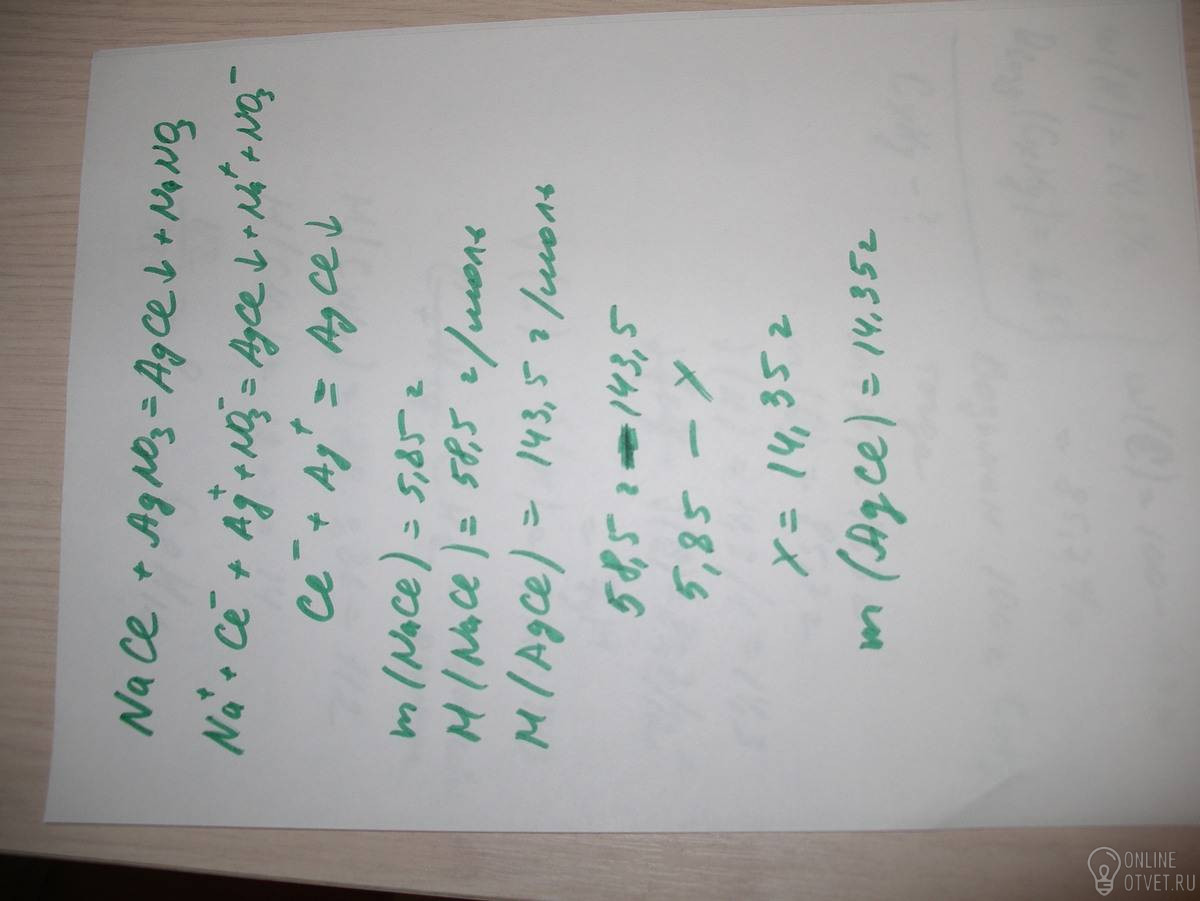 NaCl + AgNO₃ = AgCl↓ + NaNO₃
Na⁺ + Cl⁻ + Ag⁺ + NO₃⁻ = AgCl↓ + Na⁺ + NO₃⁻
Cl⁻ + Ag⁺ = AgCl↓
m(NaCl) = 5,85 г
M(NaCl) = 58,5 г/моль
M(AgCl) = 143,5 г/моль
58,5 г — 143,5
5,85 — x
x = 14,35 г
m(AgCl) = 14,35 г
ONLINE
OTVET.RU